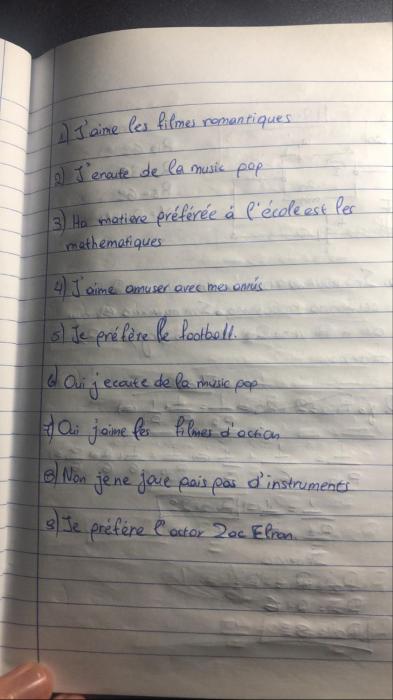 1) J'aime les filmes romantiques
2) J'enoute de la music pop
3) Ma matiere préférée à l'école est les
mathématiques
4) J'aime amuser avec mes amis
5) Je préfère le football.
6) Oui j'ecoute de la music pop
7) Oui j'aime les filmes d'action
8) Non je ne joue pais pas d'instruments
9) Je préfère l'actor Zac Efron.